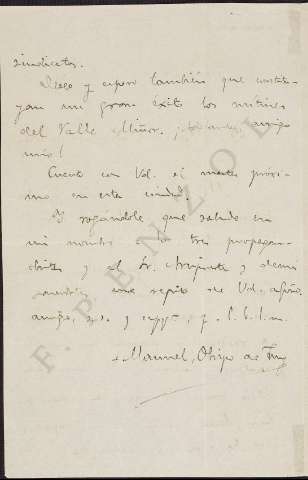 sindicatos.
Deseo y espero también que constitu-
yan un gran éxito los mítines
del Valle Miñor. ¡Adelante, amigo
mío!
Cuento con Vd. el martes próxi-
mo en esta ciudad.
Y rogándole que salude en
mi nombre a los tres propagan-
distas y al Sr. y demás
me repito de Vd. afmo.
amigo, s. s. y capp. q. l. b. l. m.
+ Manuel, Obispo de Tuy
F. PENZOL